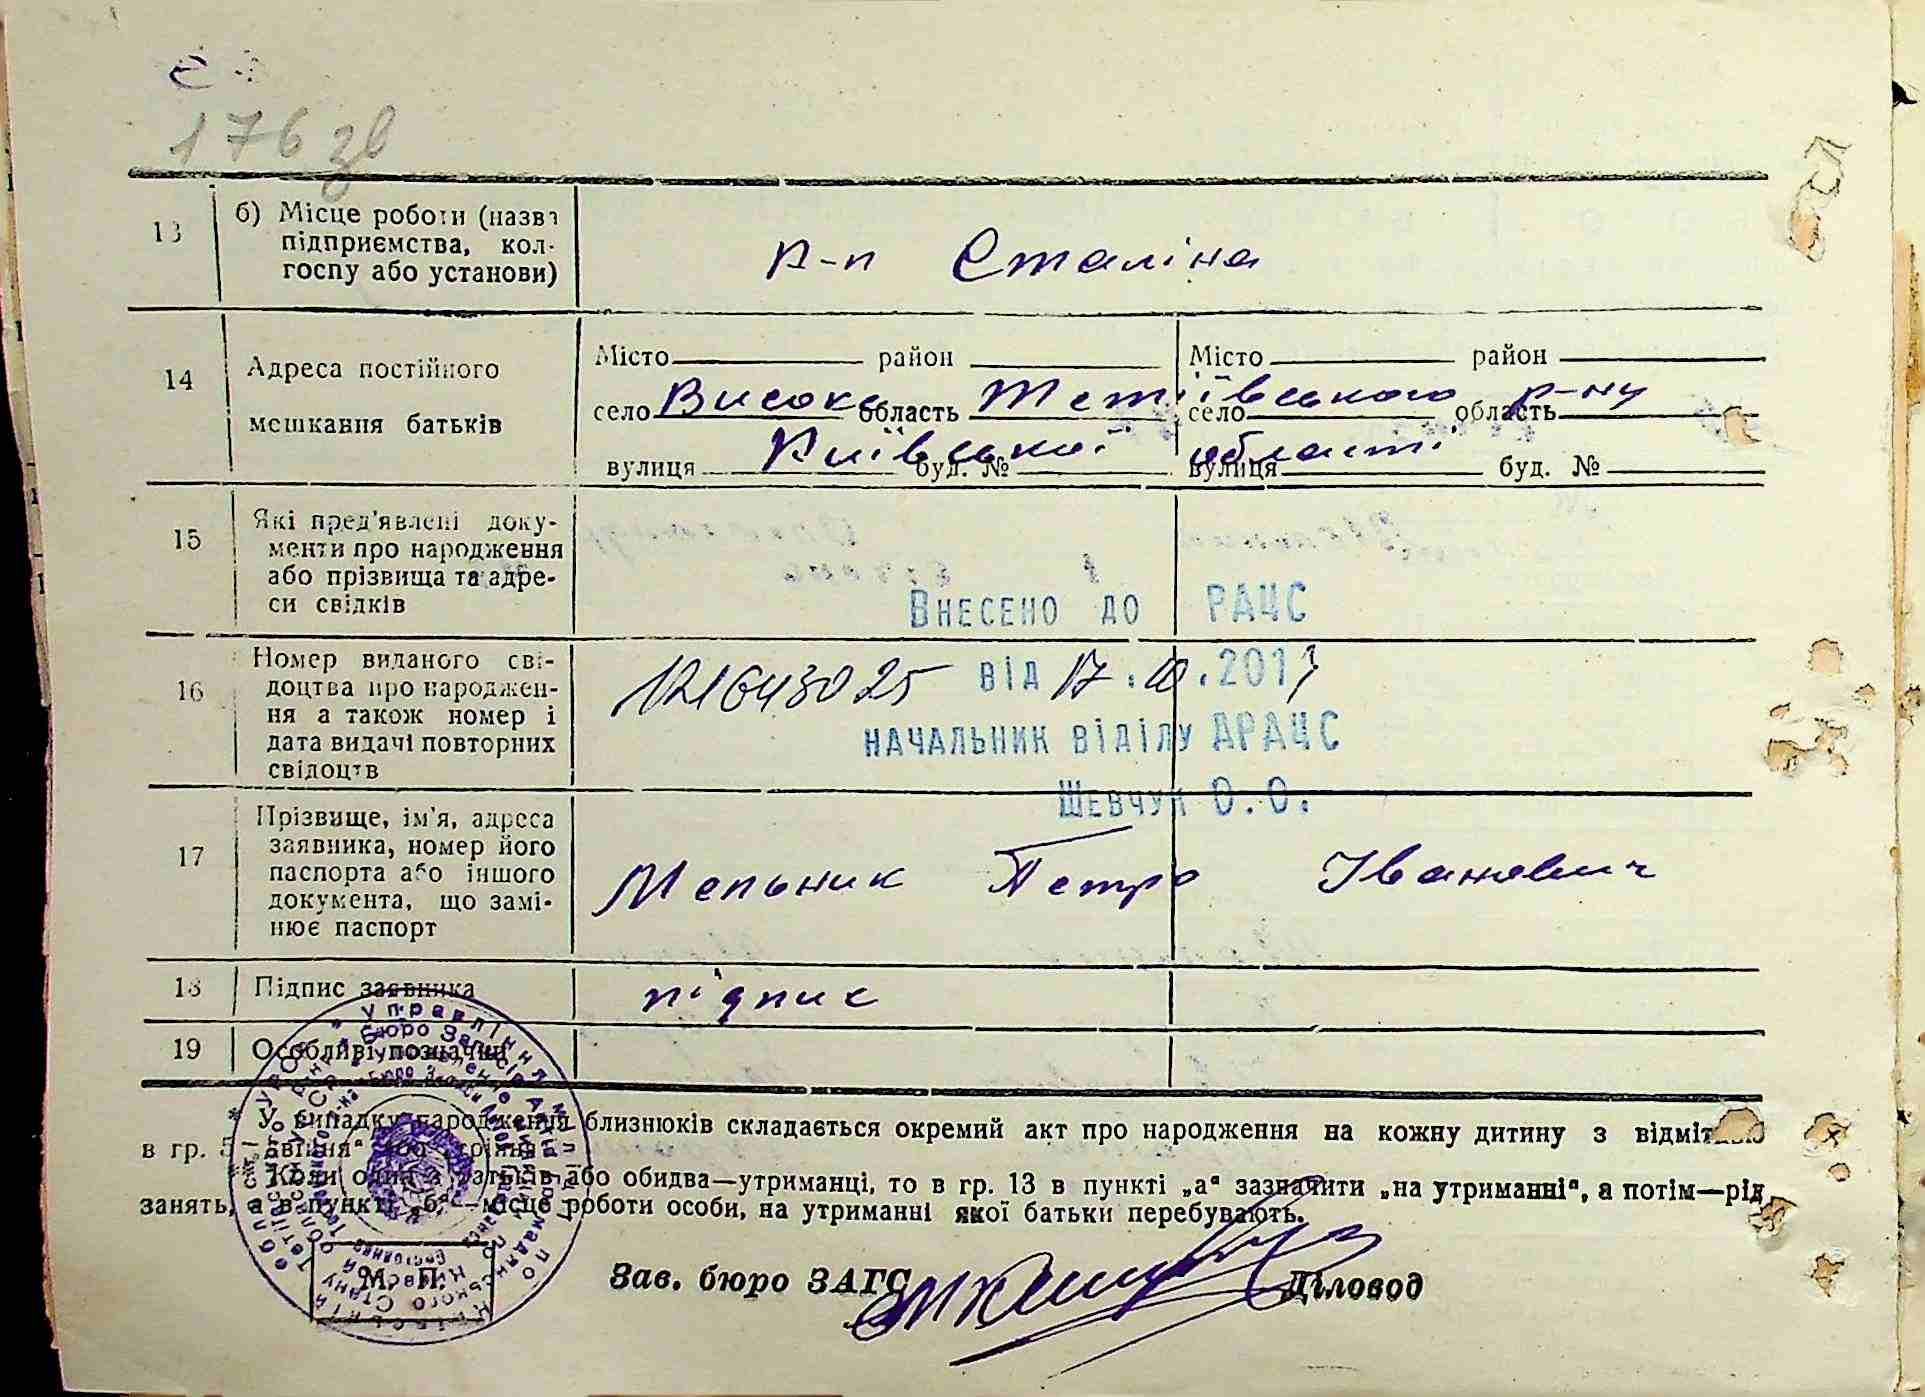 176 зв
13
б) Місце роботи (назва
підприємства, кол-
госпу або установи)
к-п Сталіна
14
Адреса постійного
мешкання батьків
Місто район
село Висока область Тетіївського р-ну
вулиця Київської буд. № області
Місто район
село область
вулиця буд. №
15
Які пред'явлені доку-
менти про народження
або прізвища та адре-
си свідків
Внесено до РАЦС
16
Номер виданого сві-
доцтва про народжен-
ня а також номер і
дата видачі повторних
свідоцтв
121643025 від 17.10.2017
начальник віділу ДРАЦС
Шевчук О.О.
17
Прізвище, ім'я, адреса
заявника, номер його
паспорта або іншого
документа, що замі-
нює паспорт
Мельник Петро Іванович
18
Підпис заявника
підпис
19
Особливі позначки
У випадку народження близнюків складається окремий акт про народження на кожну дитину з відміткою
в гр. 5 „двійня“ або „трійня“
Коли один з батьків або обидва—утриманці, то в гр. 13 в пункті „а“ зазначити „на утриманні“, а потім—рід
занять, а в пункті „б“—місце роботи особи, на утриманні якої батьки перебувають.
М. П.
Зав. бюро ЗАГС
Діловод